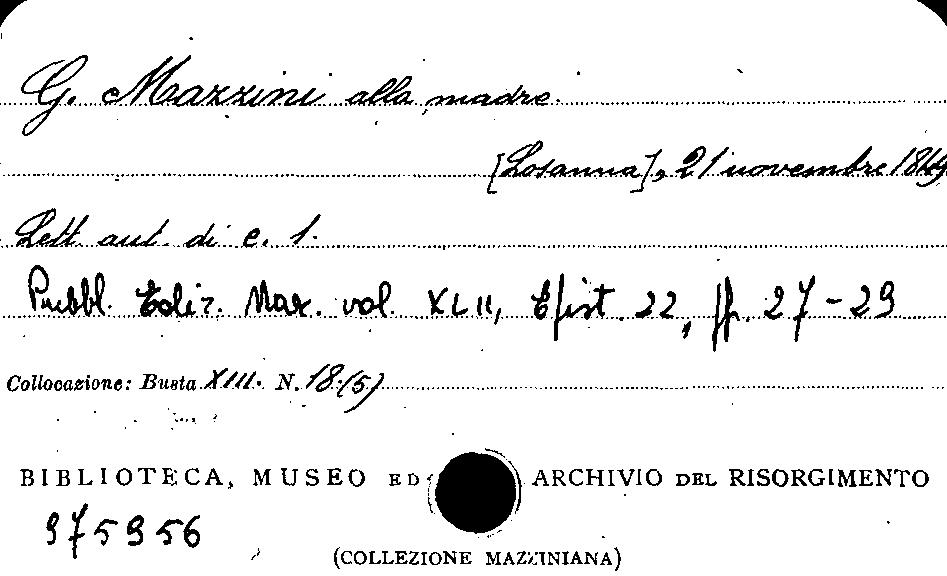 G. Mazzini alla madre.
[Losanna], 21 novembre 1849
Lett. aut. di c. 1.
Pubbl. Ediz. Maz. vol. XLII, Epist. 22, pp. 27-29
Collocazione: Busta XIII. N. 18.(5)
BIBLIOTECA, MUSEO ED ARCHIVIO DEL RISORGIMENTO
975956
(COLLEZIONE MAZZINIANA)